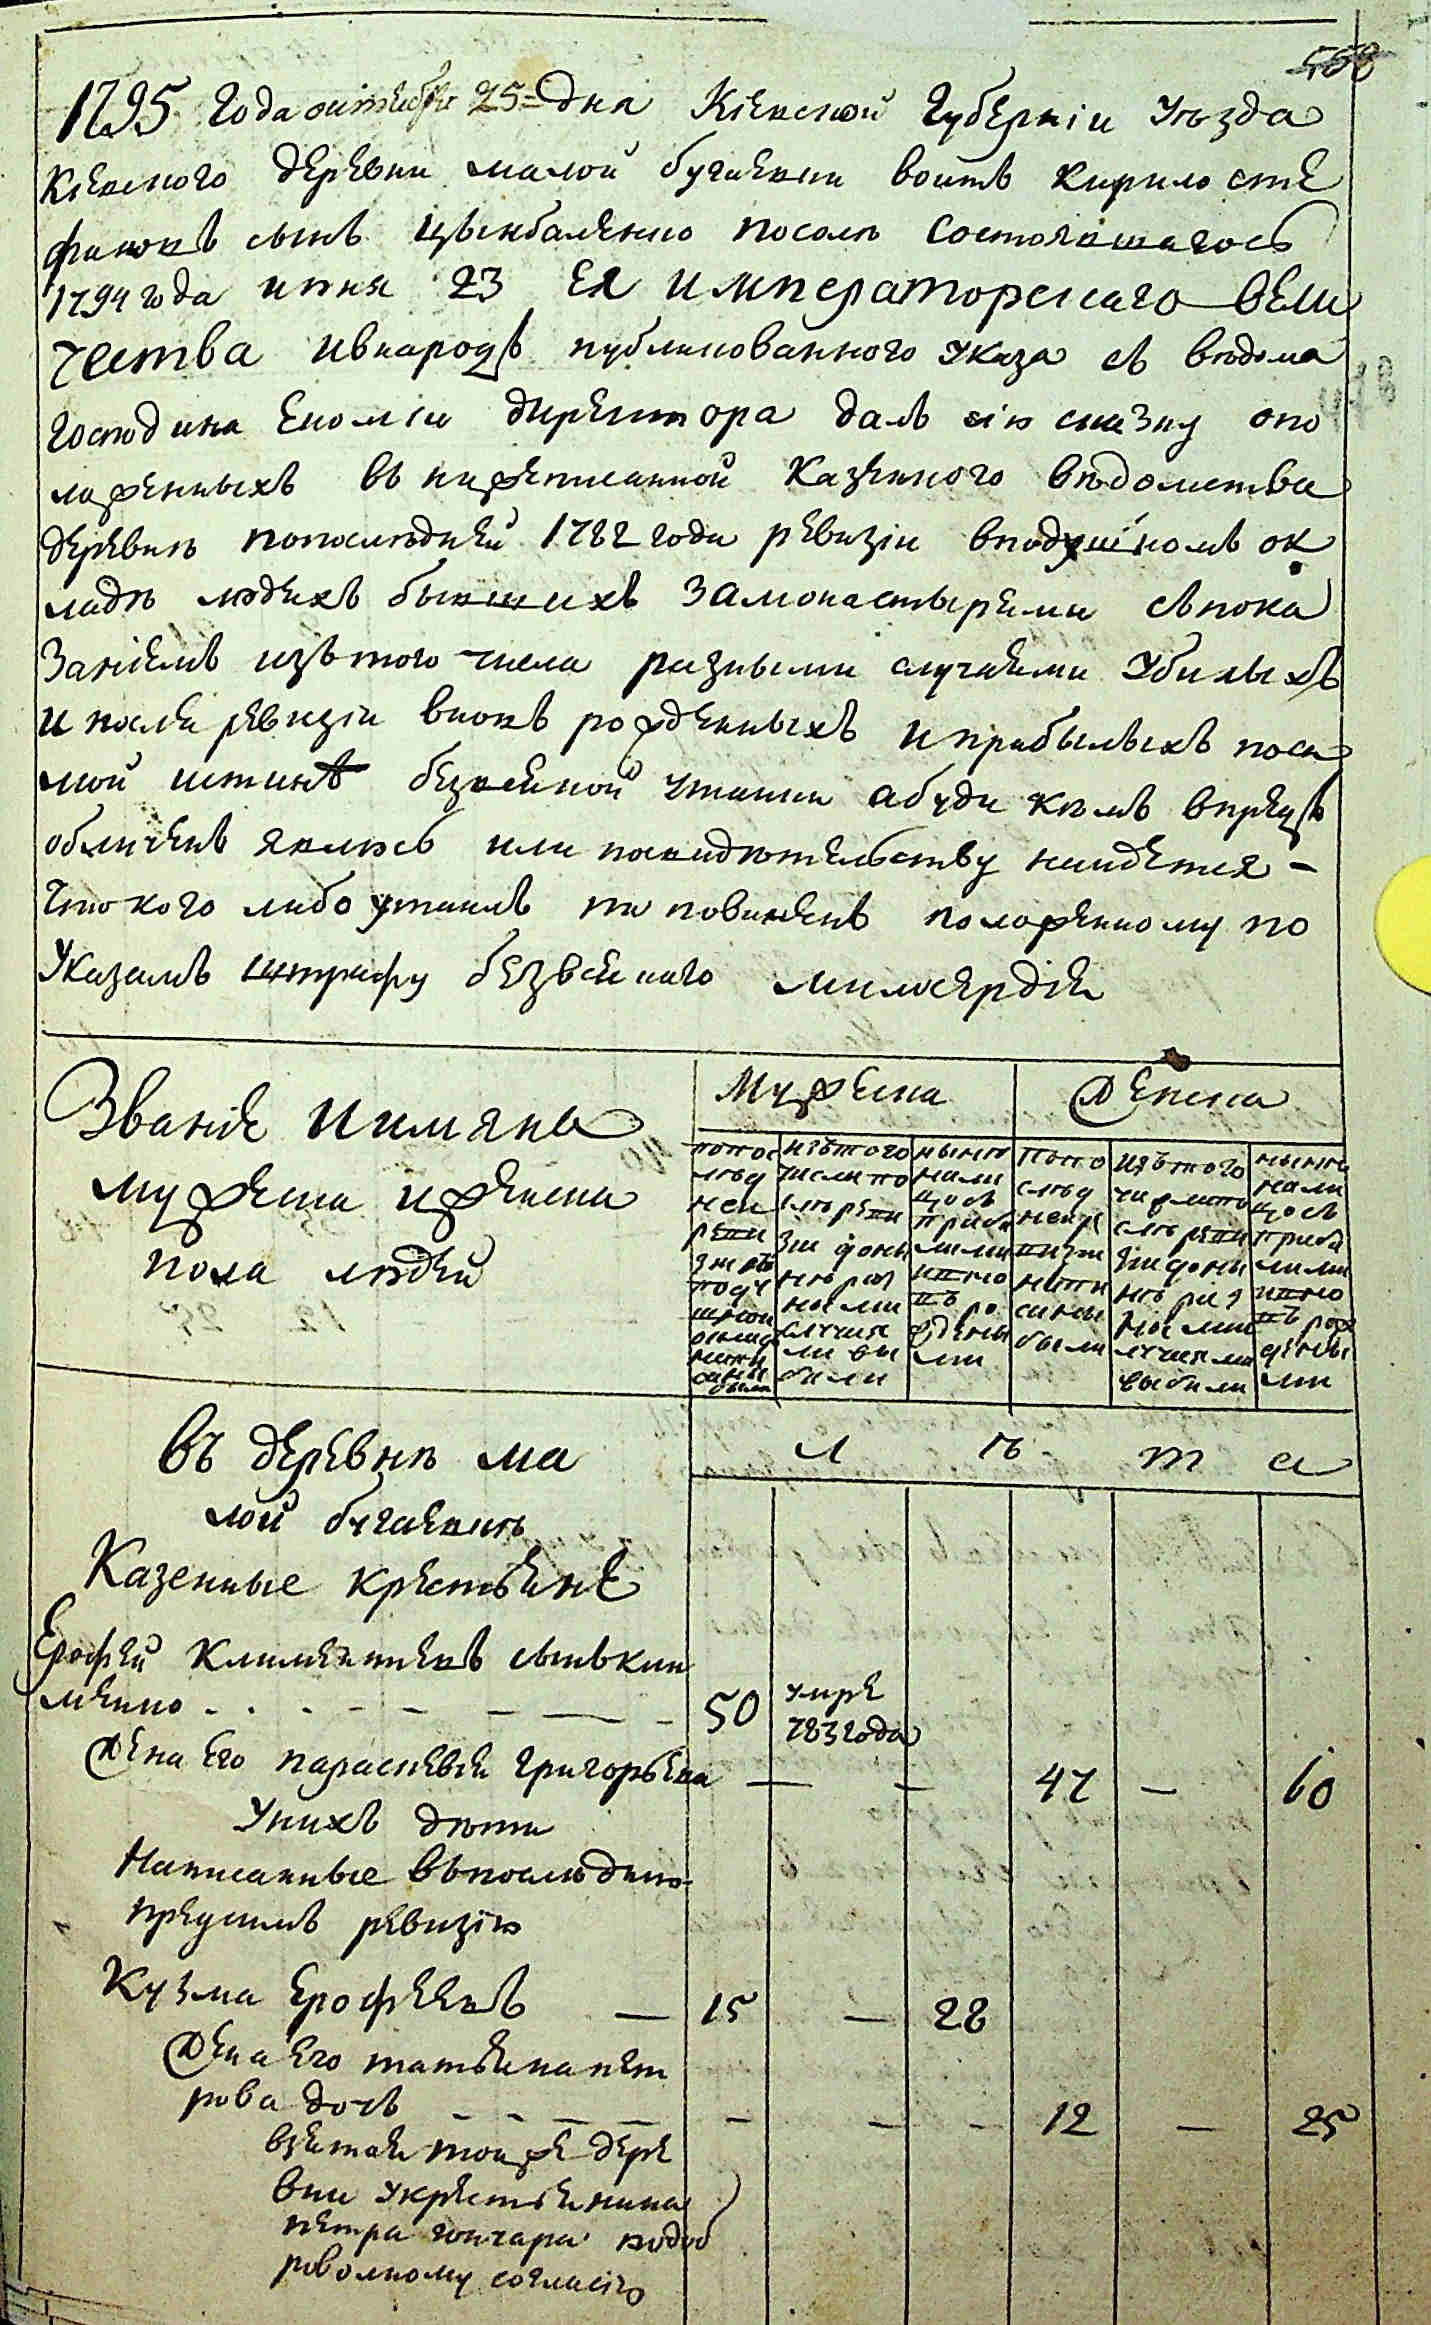 568
1795 года октября 25 = дня Кіевской губерніи уезда
Кіевского деревни малой бугаевки войтъ Кирило сте
фановъ сынъ цымбаленко посыле состоявшагось
1794 года июня 23 Ея императорскаго вели
чества ивнародъ публикованного указа съ ведома
господина економіи директора далъ сію сказку опо
ложенныхъ въ вишеписанной казенного ведомства
деревне попоследней 1782 года ревизіи вподушномъ ок
ладе людехъ бывшихъ замонастырями съпока
заніемъ изъ того числа разными случаями убилыхъ
и после ревизіи вновъ рожденныхъ иприбылыхъ поса
мой истинѣ безвсякой утайки абуде кемъ впредъ
обличенъ явлюсь или посвидетельству найдется -
что кого либо утаилъ то повиненъ положенному по
указамъ штрафу безвсякаго милосердія
Званіе иимяна
мужеска иженска
пола людей
мужеска
женска
попос
лед
ней
реви
зіи въ
поду
шной
оклад
напи
саны
были
изътого
числа по
сле реви
зіи доны
не раз
ными
случая
ми вы
были
ныне
нали
цо съ
прибы
лыми
ивно
въ ро
ждены
ми
попо
след
ней ре
визіи
напи
саны
были
изътого
числа по
сле реви
зіи доны
не раз
ными
случаями
выбыли
ныне
нали
цо съ
прибы
лыми
ивно
въ рож
дены
ми
л е т а
въ деревне ма
лой бугаевке
Казенные крестьяне
Ерофей Климентиевъ сынъ Кли
менко - - - - - 50 умре
783 года
жена его параскевия григорьева — - 47 — 60
Унихъ дети
Написанные въпоследнюю
предсимъ ревизію
Кузма Ерофеевъ — 15 — 28
жена его татьяна пет
рова дочь - - - - - - - 12 — 25
взятая тойже дере
вни укрестьянина
петра гончара подоб
роволному согласію